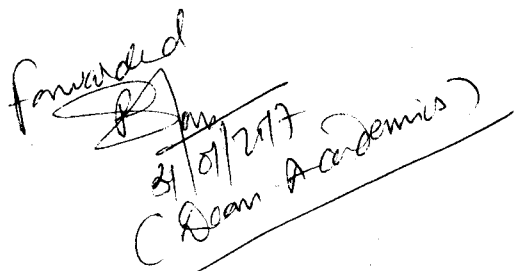 Forwarded
31/01/2017
(Dean Academics)